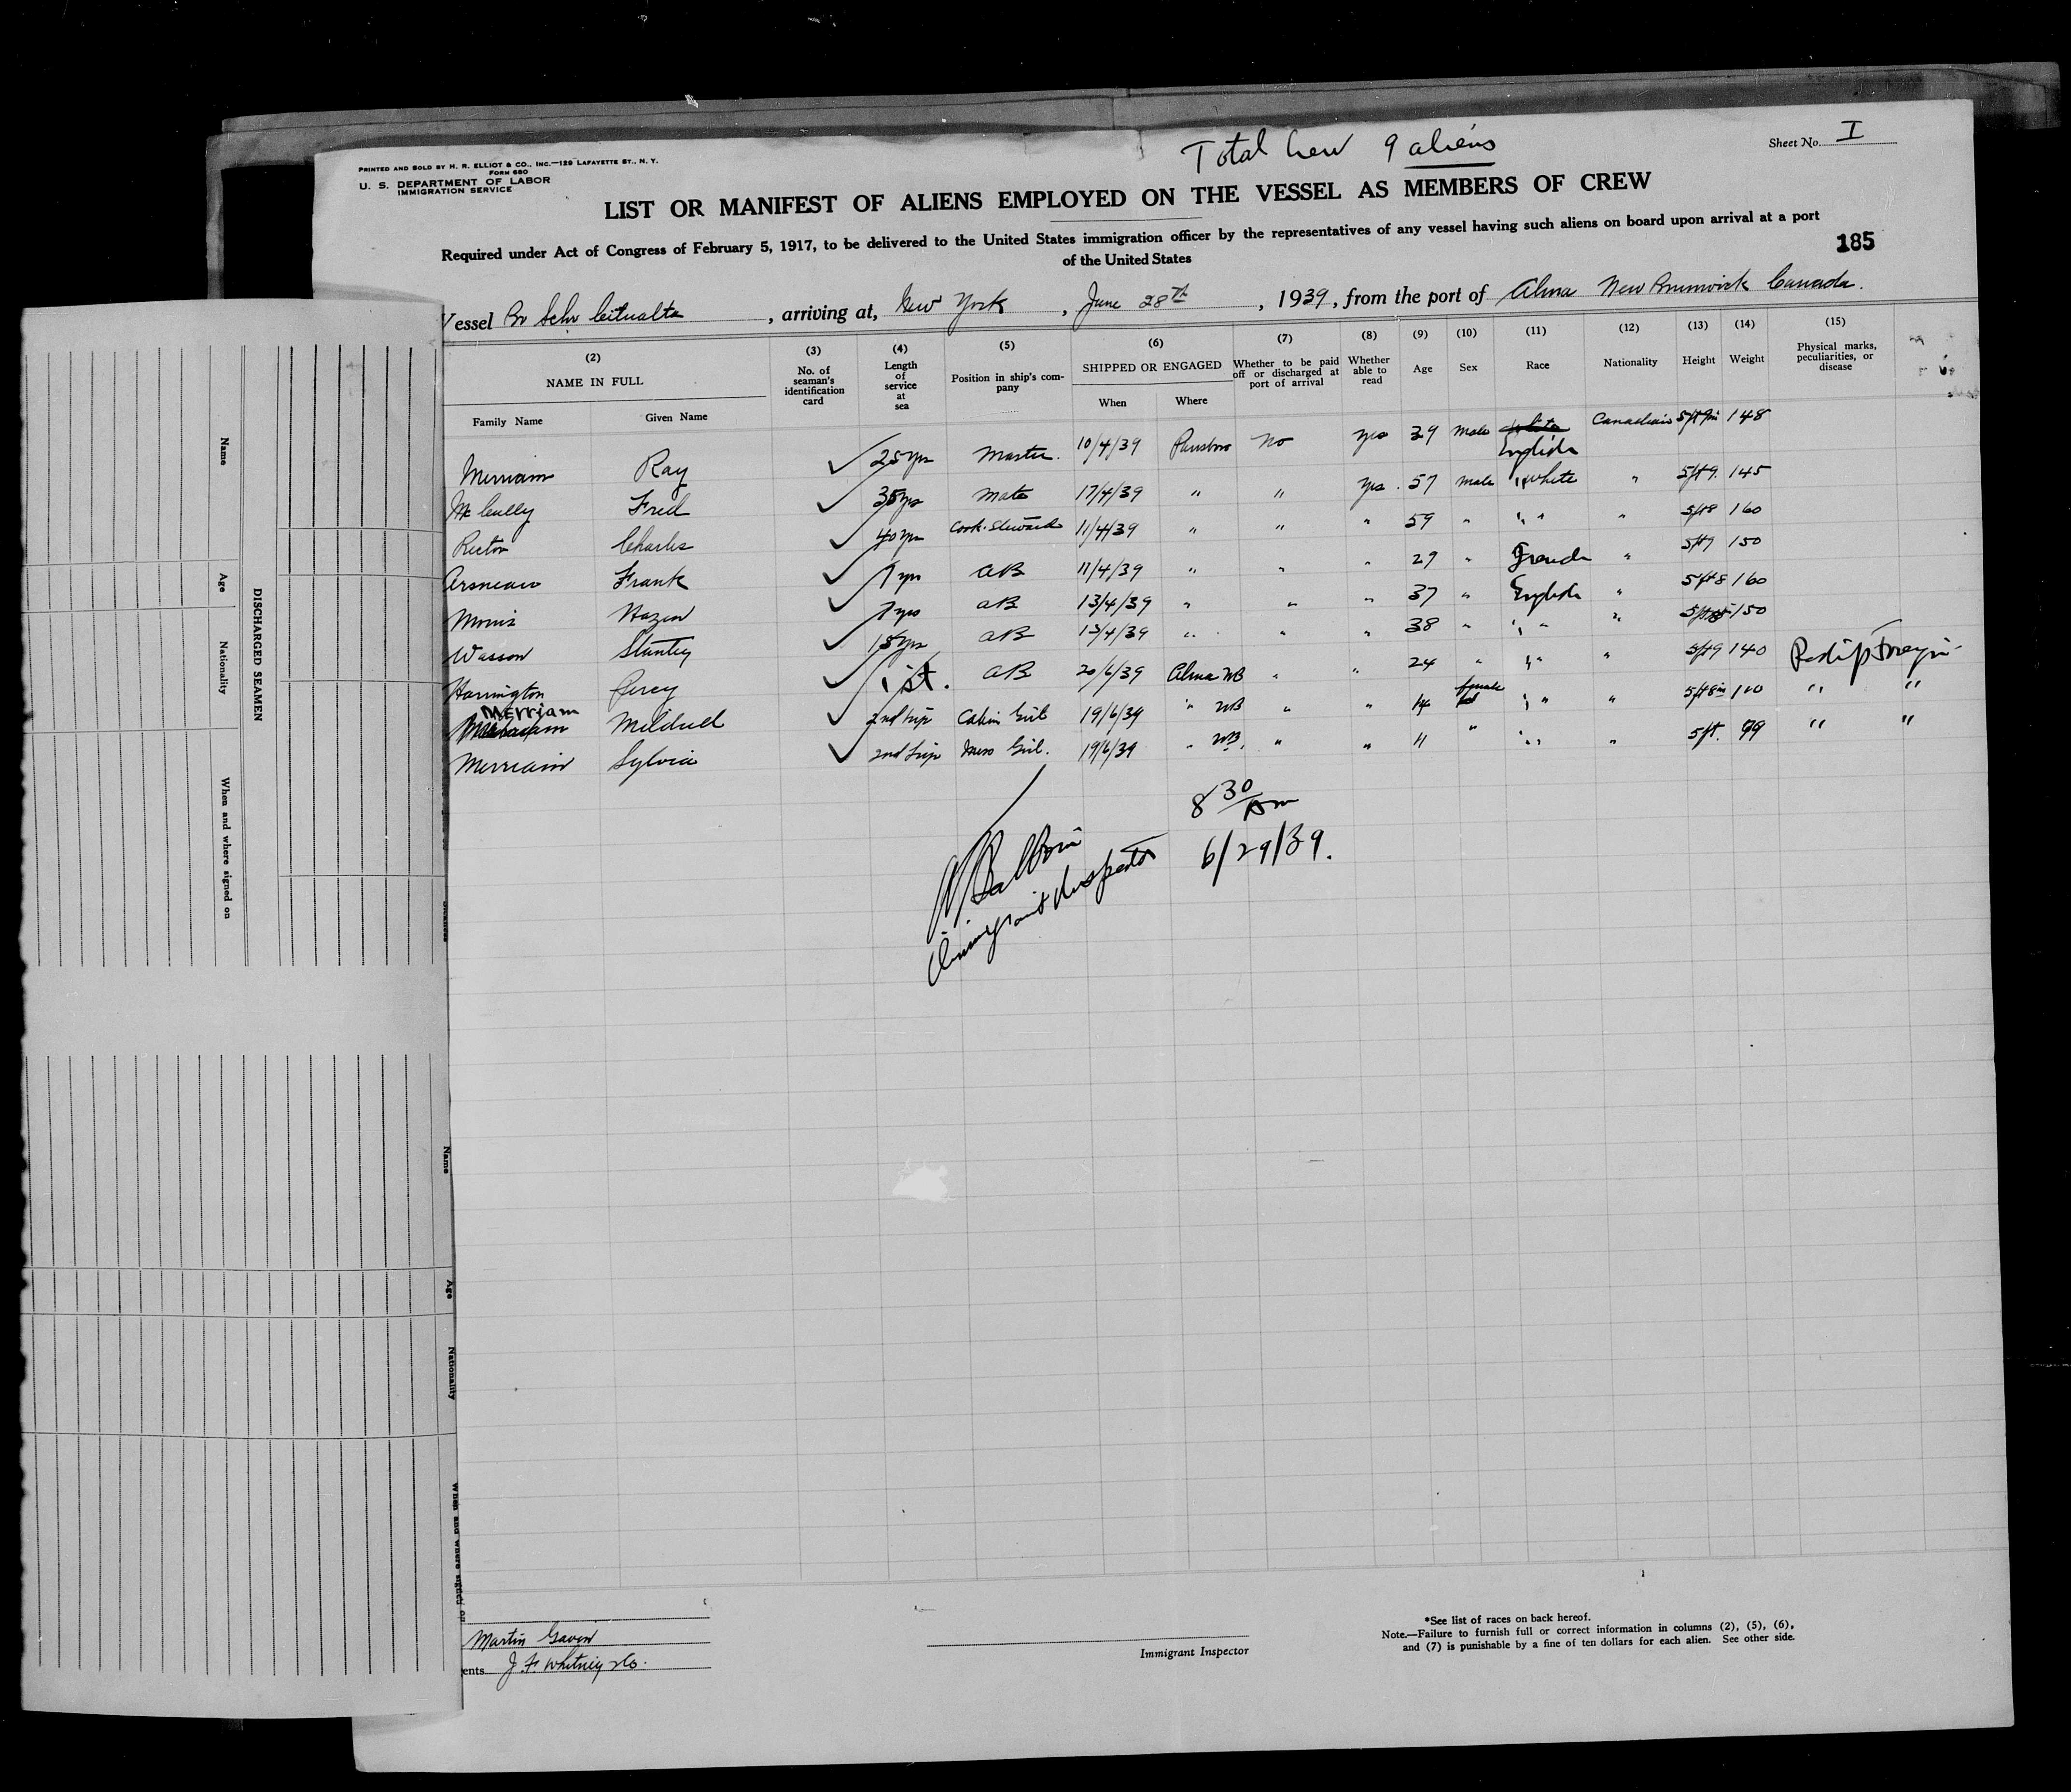 Total Crew 9 aliens
Sheet No. I
PRINTED AND SOLD BY H. R. ELLIOT & CO., INC.—129 LAFAYETTE ST., N. Y.
FORM 680
U. S. DEPARTMENT OF LABOR
IMMIGRATION SERVICE
LIST OR MANIFEST OF ALIENS EMPLOYED ON THE VESSEL AS MEMBERS OF CREW
Required under Act of Congress of February 5, 1917, to be delivered to the United States immigration officer by the representatives of any vessel having such aliens on board upon arrival at a port
of the United States
185
Vessel Br Schr , arriving at, New York , June 28th , 1939, from the port of Alma New Brunswick Canada.
(2) (3) (4) (5) (6) (7) (8) (9) (10) (11) (12) (13) (14) (15)
NAME IN FULL No. of seaman's identification card Length of service at sea Position in ship's company SHIPPED OR ENGAGED Whether to be paid off or discharged at port of arrival Whether able to read Age Sex Race Nationality Height Weight Physical marks, peculiarities, or disease
Family Name Given Name When Where
Merriam Ray ✓ 25 yrs Master. 10/4/39 Parrsboro No yes 39 male White English Canadian 5ft 9in 148
McCully Fred ✓ 35 yrs Mate 17/4/39 " " yes 57 male " White " 5ft 9. 145
Rector Charles ✓ 40 yrs Cook-Steward 11/4/39 " " " 59 " " " " 5ft 8 160
Arseneau Frank ✓ 7 yrs AB 11/4/39 " " " 27 " French " 5ft 7 150
Morris Hazen ✓ 7 yrs AB 13/4/39 " " " 37 " English " 5ft 8 160
Wasson Stanley ✓ 15 yrs AB 13/4/39 " " " 38 " " " " 150
Harrington Percy ✓ 1st. AB 20/6/39 Alma NB " " 24 " " " 5ft 9 140
Merriam Mildred ✓ 2nd trip Cabin Girl 19/6/39 " NB " " 14 female " " " 110 " "
Merriam Sylvia ✓ 2nd trip Mess Girl. 19/6/39 " NB. " " 11 " " " " 5ft. 99 " "
8 30 Am
6/29/39.
Immigrant Inspector
Name Age Nationality When and where signed on
DISCHARGED SEAMEN
Name Age Nationality When and where signed on
Martin Gavin
ents J. F. Whitney & Co.
Immigrant Inspector
*See list of races on back hereof.
Note.—Failure to furnish full or correct information in columns (2), (5), (6),
and (7) is punishable by a fine of ten dollars for each alien. See other side.